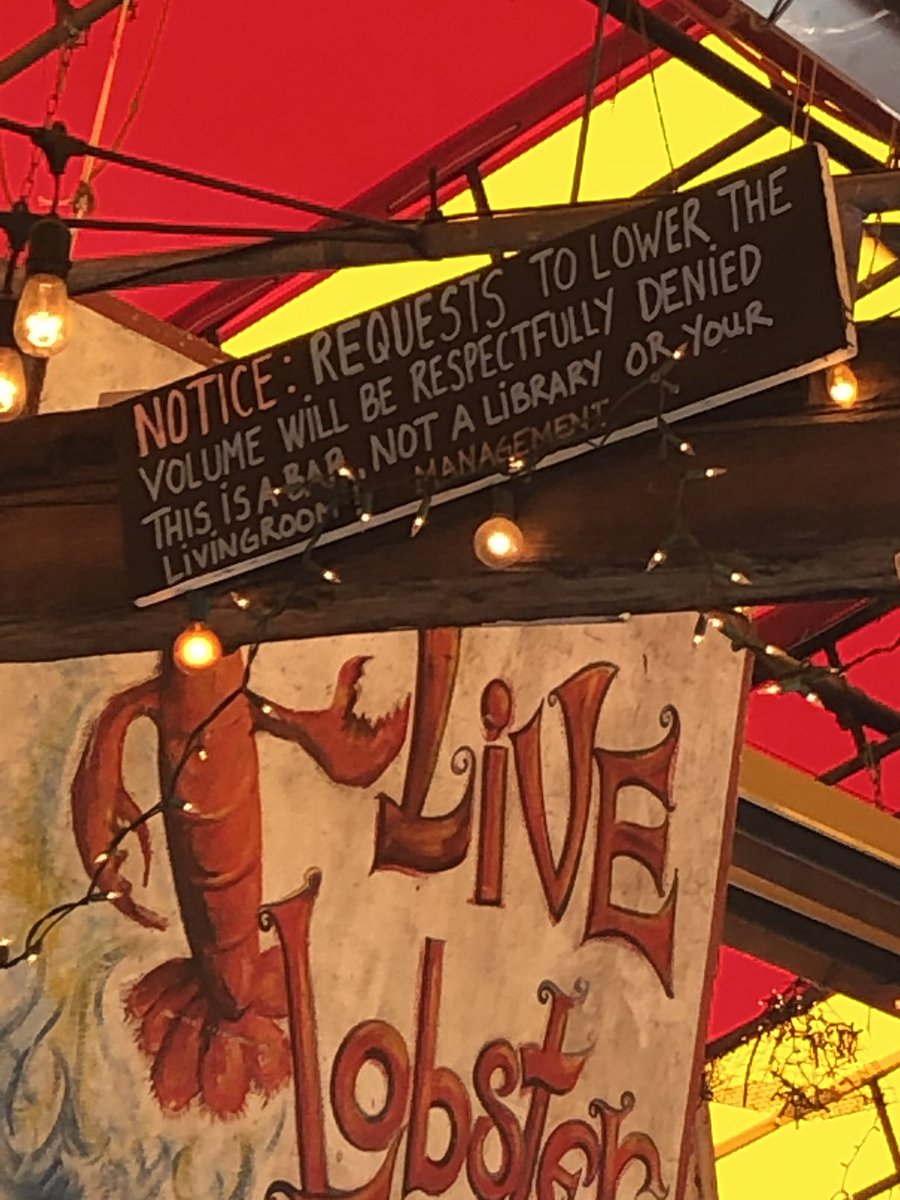 NOTICE: REQUESTS TO LOWER THE
VOLUME WILL BE RESPECTFULLY DENIED
THIS IS A BAR, NOT A LIBRARY OR YOUR
LIVINGROOM! MANAGEMENT.
LIVE
Lobster